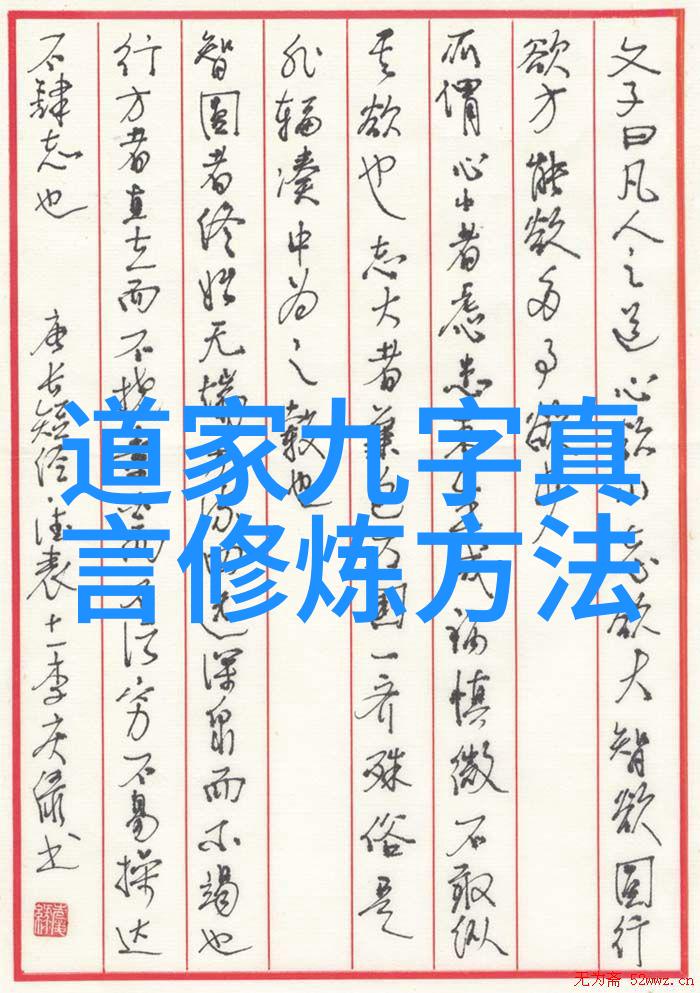 文子曰凡人之道心欲小志欲大智欲圆行
欲方能欲多事欲少
所谓心小者虑患未生戒祸慎微不敢纵
其欲也志大者兼包万国一齐殊俗是
非辐凑中为之毂也
智圆者终始无端方流四远深泉而不竭也
行方者直立而不挠素白而不污穷不易操达
不肆志也 唐长短经·德表十一李庆书
道家九字真
言修炼方法
无为斋 52wwz.cn